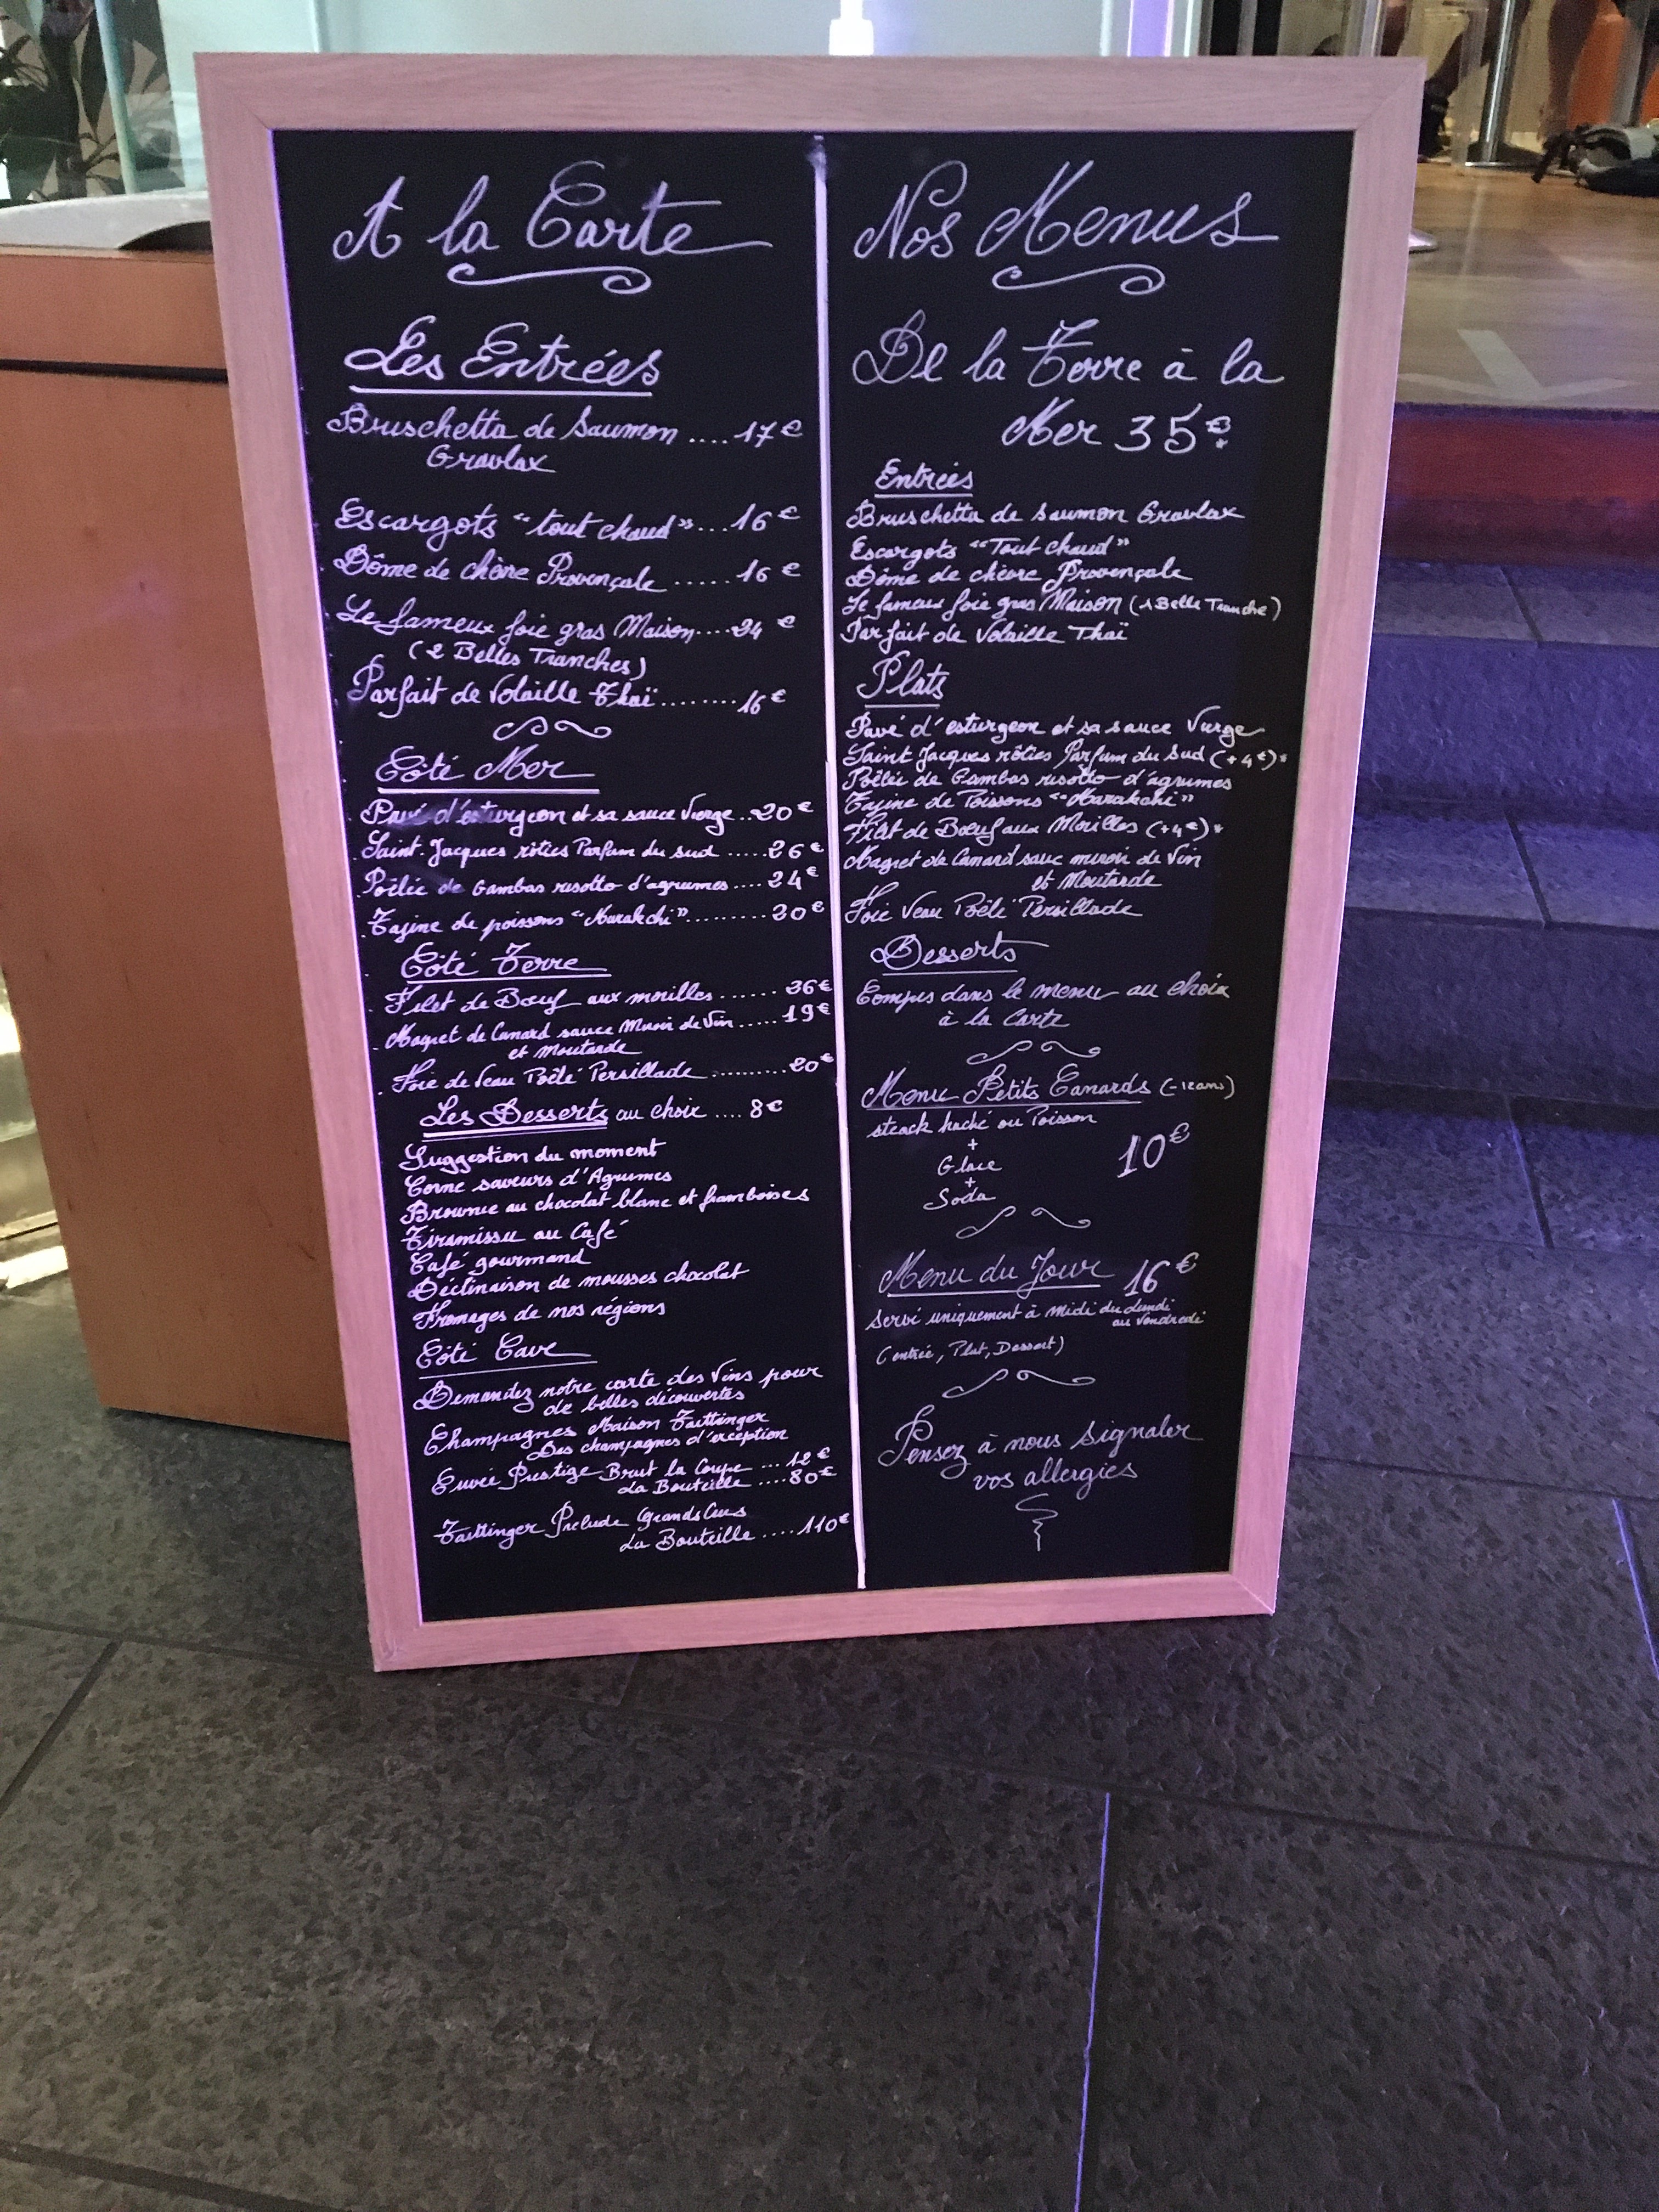 A la Carte
Les Entrées
Bruschetta de Saumon .... 17€
Gravlax
Escargots "tout chaud" ... 16€
Dôme de chèvre Provençale ..... 16€
Le fameux foie gras Maison .... 24€
(2 Belles Tranches)
Parfait de Volaille Thaï ........ 16€
Côté Mer
Pavé d'esturgeon et sa sauce Vierge .. 20€
Saint-Jacques rôties Parfum du Sud ..... 26€
Poêlée de Gambas risotto d'agrumes .... 24€
Tajine de poissons "Marakchi" ......... 20€
Côté Terre
Filet de Bœuf aux morilles ...... 26€
Magret de Canard sauce Miroir de Vin ..... 19€
et Moutarde
Foie de Veau Poêlé Persillade ......... 20€
Les Desserts au choix .... 8€
Suggestion du moment
Corne saveurs d'Agrumes
Brownie au chocolat blanc et framboises
Tiramissu au Café
Café gourmand
Déclinaison de mousses chocolat
Fromages de nos régions
Côté Cave
Demandez notre carte des Vins pour
de belles découvertes
Champagnes Maison Taittinger
Des champagnes d'exception
Cuvée Prestige Brut la Coupe ... 12€
La Bouteille .... 80€
Taittinger Prelude Grands Crus
La Bouteille .... 110€
Nos Menus
De la Terre à la
Mer 35€*
Entrées
Bruschetta de saumon Gravlax
Escargots "Tout chaud"
Dôme de chèvre Provençale
Le fameux foie gras Maison (1 Belle Tranche)
Parfait de Volaille Thaï
Plats
Pavé d'esturgeon et sa sauce Vierge
Saint Jacques rôties Parfum du Sud (+4€)*
Poêlée de Gambas risotto d'agrumes
Tajine de Poissons "Marakchi"
Filet de Bœuf aux Morilles (+4€)*
Magret de Canard sauce miroir de Vin
et Moutarde
Foie Veau Poêlé Persillade
Desserts
Compris dans le menu au choix
à la Carte
Menu Petits Canards (-12ans)
steack haché ou Poisson
+
Glace
10€
+
Soda
Menu du Jour 16€
Servi uniquement à midi du Lundi
au Vendredi
(entrée, Plat, Dessert)
Pensez à nous signaler
vos allergies